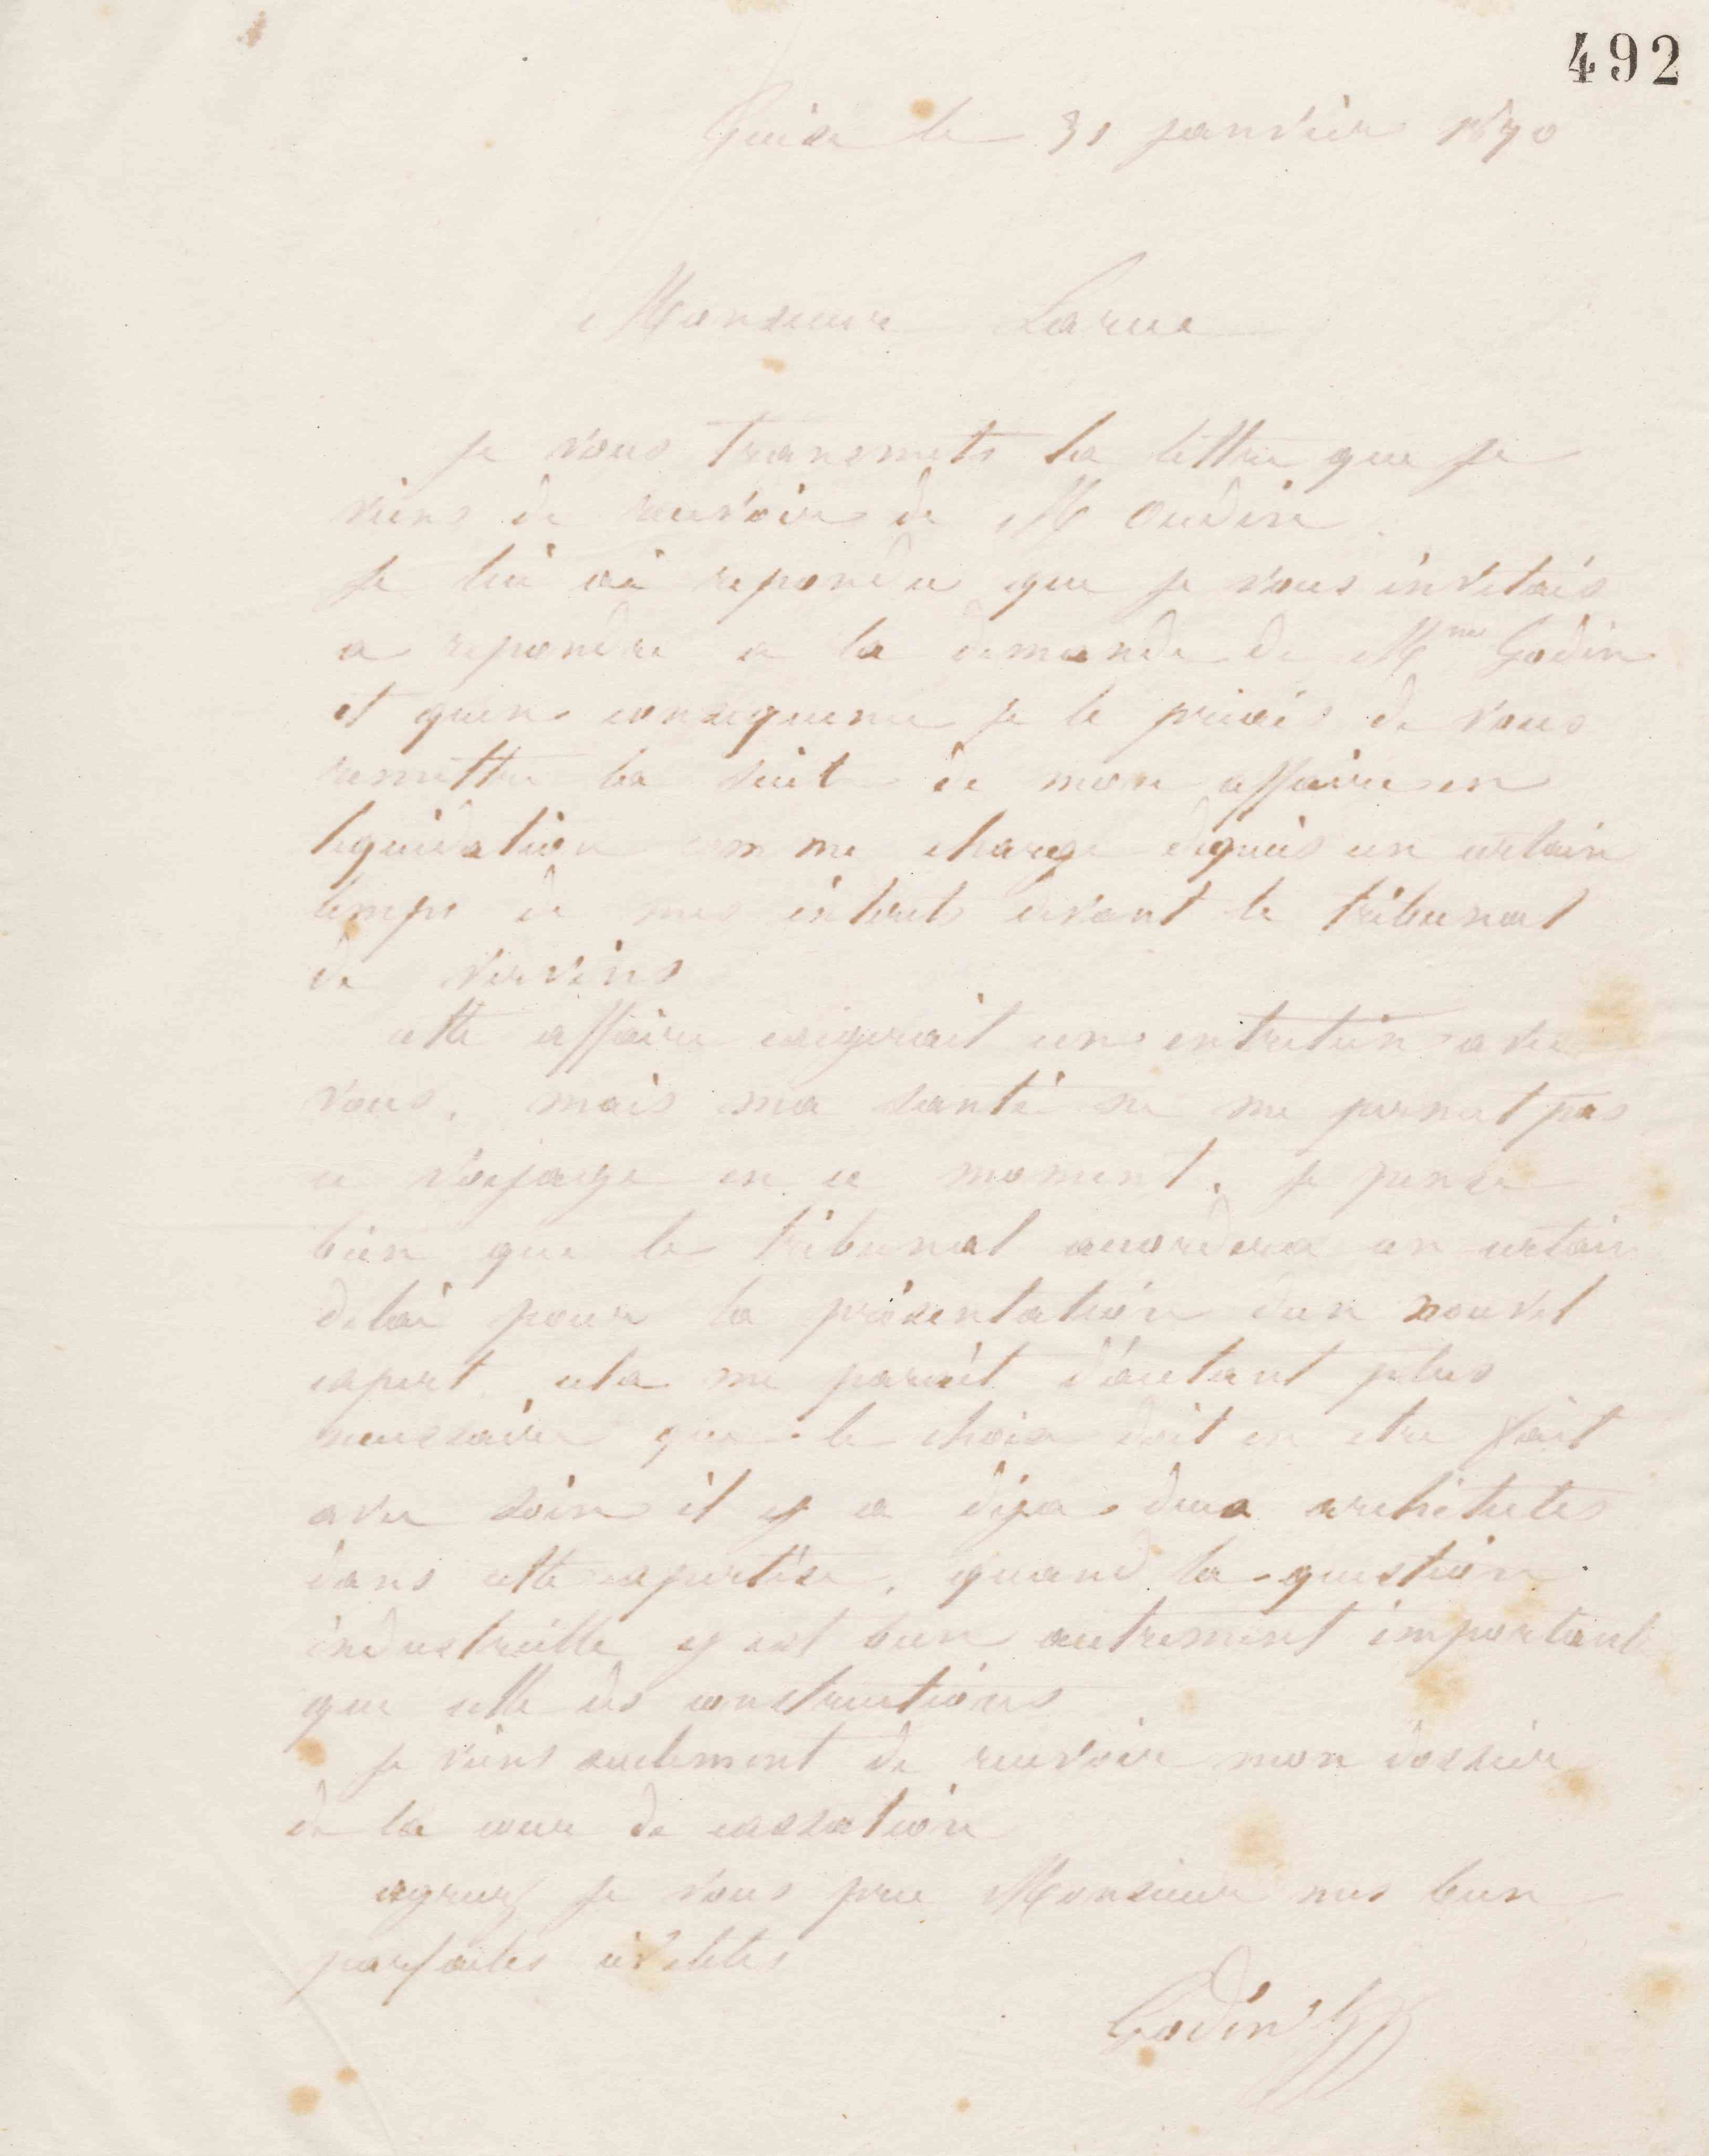 492
Guise le 31 janvier 1870
Monsieur Larue
Je vous transmets la lettre que je
viens de recevoir de M Oudin.
Je lui ai repondu que je vous invitais
a repondre a la demande de Mme Godin
et quen consequence je le priais de vous
remettre la suite de mon affaire en
liquidation comme charge depuis un certain
temps de mes intérets devant le tribunal
de Vervins
cette affaire exigerait un entretien avec
vous, mais ma santé ne me permet pas
ce voyage en ce moment. je pense
bien que le tribunal accordera un certain
delai pour la présentation dun nouvel
expert cela me parait d'autant plus
necessaire que le choix doit en etre fait
avec soin il y a déja deux architectes
dans cette expertise, quand la question
industrielle y est bien autrement importante
que celle des constructions
Je viens seulement de recevoir mon dossier
de la cour de cassation
agreez je vous prie Monsieur mes bien
parfaites civilités
Godin